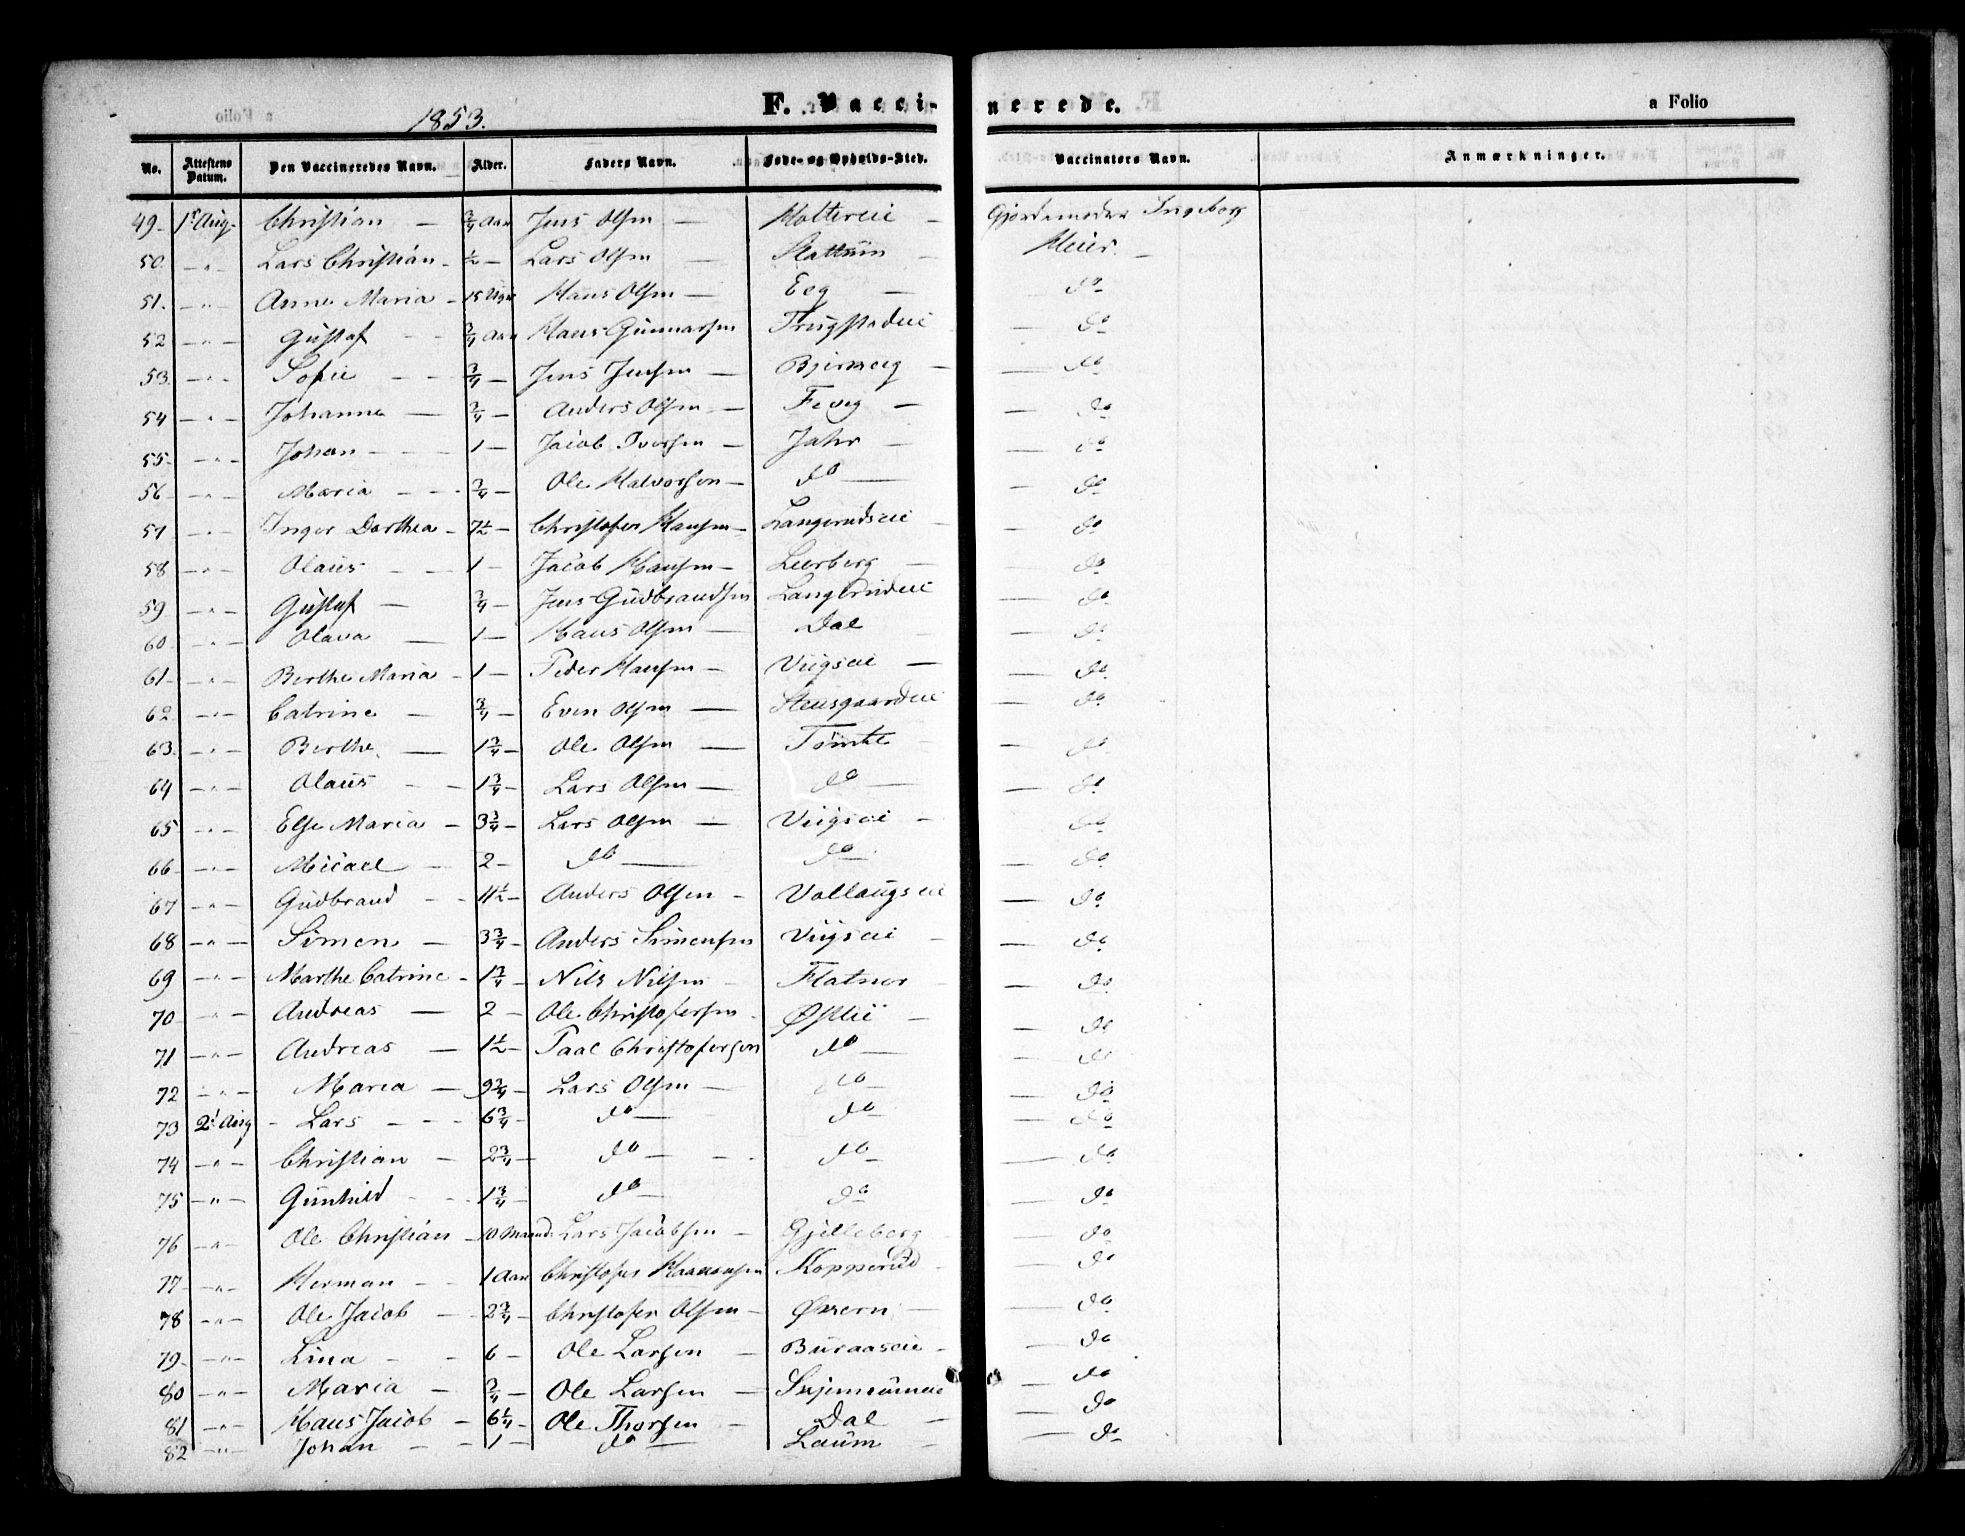 1853.
F. Vaccinerede.
a Folio
No. Attestens Datum. Den Vaccineredes Navn. Alder. Faders Navn. Føde- og Opholds-Sted. Vaccinators Navn. Anmærkninger.
49. 1ste Aug. Christian — 3/4 Aar Jens Olsen — Gjordemoder Ingeborg
50. — " — Lars Christian — 1/2 — Lars Olsen — Slattum — Meier. —
51. — " — Anne Maria — 15 Uger Hans Olsen — Eeg — do
52 — " — Gustaf — 3/4 Aar Hans Gunnarsen Trugstadeie — do
53. — " — Sofie — 3/4 — Jens Jensen — — do
54 — " — Johanna — 3/4 — Anders Olsen — — do
55. — " — Johan — 1 — Jacob Iversen — Jahr — do
56 — " — Maria — 3/4 — Ole Halvorsen — do — do
57 — " — Inger Dorthea — 7 1/2 — Christofer Hansen — Langerudseie — do
58 — " — Olaus — 1 — Jacob Hansen — Leerberg — do
59 — " — Gustaf — 3/4 — Jens Gudbrandsen — do
60 — " — Olava — 1 — Hans Olsen — Dal — do
61 — " — Berthe Maria — 1 — Peder Hansen — Viigseie — do
62 — " — Catrine — 3/4 — Even Olsen — Steensgaardeie — do
63. — " — Berthe — 1 3/4 — Ole Olsen — Tømte — do
64 — " — Olaus — 1 3/4 — Lars Olsen — do — do
65 — " — Else Maria — 3 3/4 — Lars Olsen — Viigseie — do
66 — " — Micael — 2 — do — do — do
67 — " — Gudbrand — 11 1/2 — Anders Olsen — Vollaugseie — do
68 — " — Simen — 3 3/4 — Anders Simensen Viigseie — do
69 — " — Marthe Catrine — 1 3/4 — Nils Nilsen — Flatner — do
70 — " — Andreas — 2 — Ole Christofersen — Østlii — do
71 — " — Andreas — 1 1/2 — Paal Christofersen do — do
72 — " — Maria — 9 3/4 — Lars Olsen — do — do
73 2. Aug — Lars — 6 3/4 — do — do — do
74 — " — Christian — 2 3/4 — do — do — do
75 — " — Gunhild — 1 3/4 — do — do — do
76 — " — Ole Christian — 10 Maand. Lars Jacobsen — Gjelleberg — do
77 — " — Herman — 1 Aar Christofer Kopperud — do
78 — " — Ole Jacob — 2 3/4 — Christofer Olsen — Øxern — do
79. — " — Lina — 6 — Ole Larsen — Buraaseie — do
80 — " — Maria — 3/4 — Ole Larsen — — do
81 — " — Hans Jacob — 6 1/4 — Ole Thorsen — Dal — do
82 — " — Johan — 1 — do — Laum — do